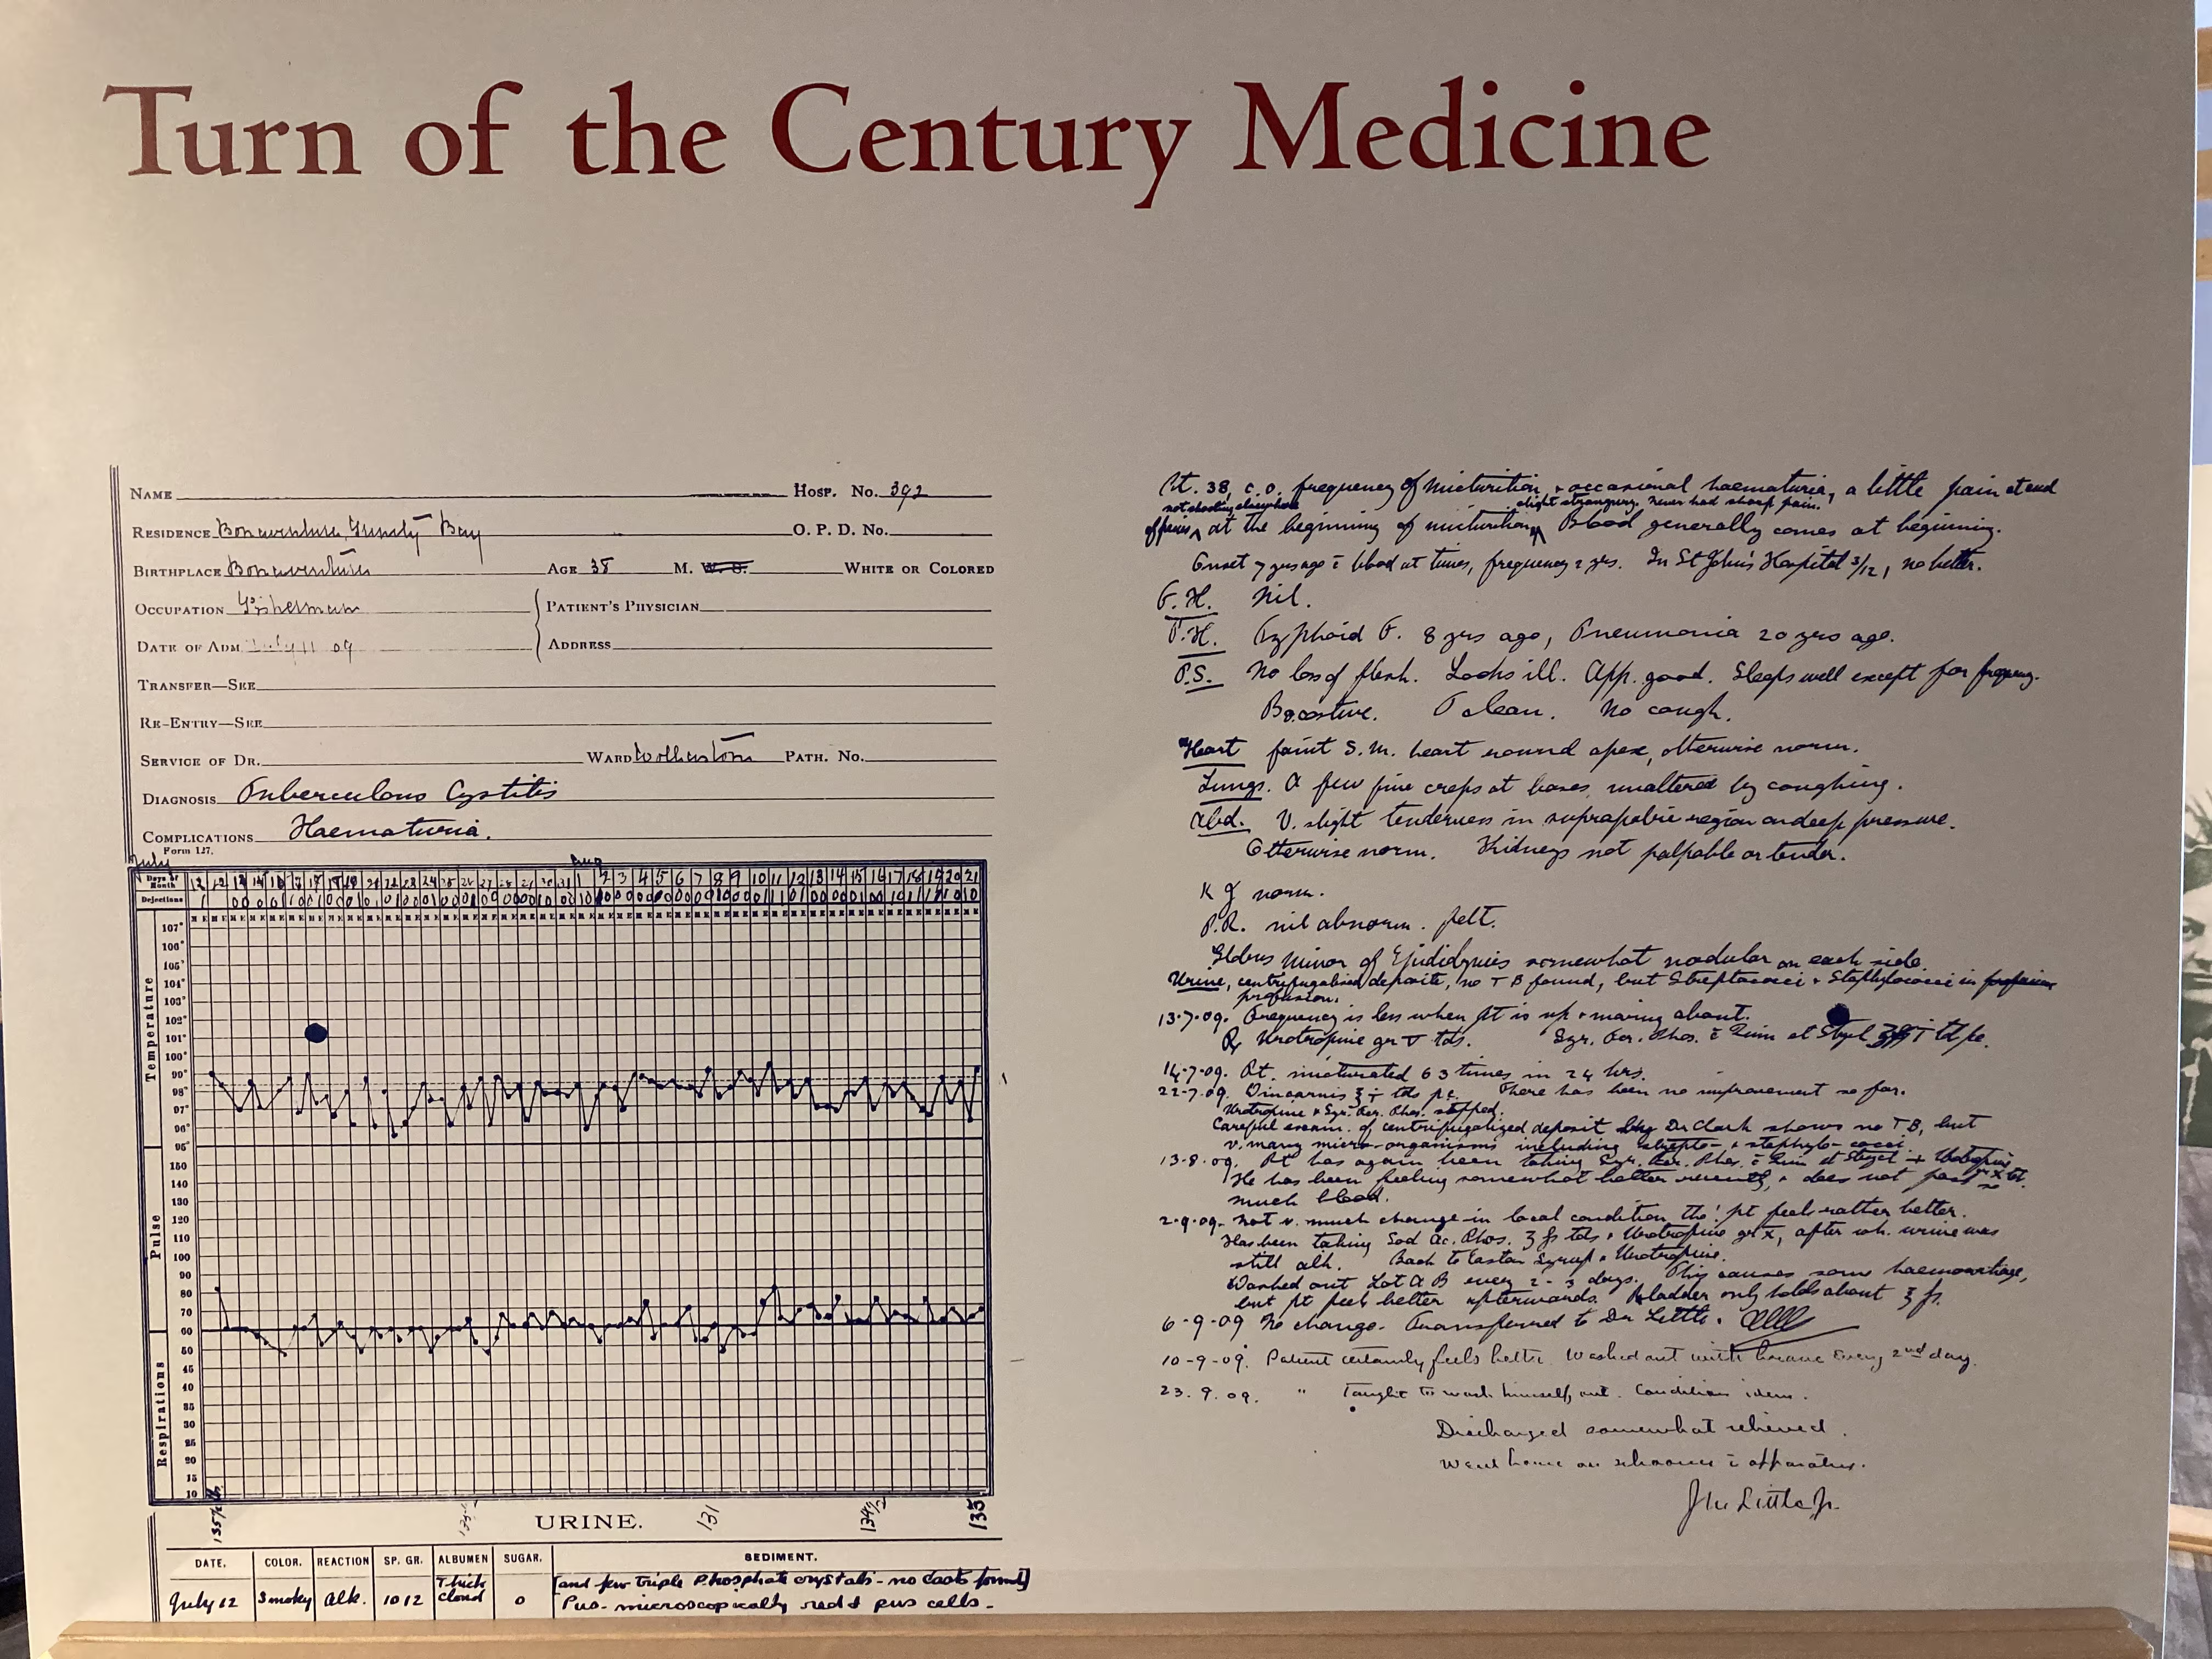 Turn of the Century Medicine
NAME HOSP. No. 392
RESIDENCE Bonaventure, Bay O. P. D. No.
BIRTHPLACE Bonaventure AGE 38 M. W. S. WHITE OR COLORED
OCCUPATION Fisherman PATIENT'S PHYSICIAN
DATE OF ADM. July 11 09 ADDRESS
TRANSFER—SEE
RE-ENTRY—SEE
SERVICE OF DR. WARD PATH. No.
DIAGNOSIS Tuberculous Cystitis
COMPLICATIONS Haematuria.
Form 127.
July Aug
Days of Month
Dejections
Temperature
107°
106°
105°
104°
103°
102°
101°
100°
99°
98°
97°
96°
95°
Pulse
150
140
130
120
110
100
90
80
70
60
50
Respirations
45
40
35
30
25
20
15
10
131 134½ 135
URINE.
DATE. COLOR. REACTION SP. GR. ALBUMEN SUGAR. SEDIMENT.
July 12 Smoky Alk. 1012 Thick cloud 0 [and few triple Phosphate crystals - no casts found]
Pus - microscopically red & pus cells -
Pt. 38, c.o. frequency of micturition, + occasional haematuria, a little pain at end
not shooting elsewhere slight strangury. never had sharp pain.
of penis at the beginning of micturition. Blood generally comes at beginning.
Onset 7 yrs ago c̄ blood at times, frequency 2 yrs. In St John's Hospital 3/12, no better.
F.H. Nil.
P.H. Typhoid F. 8 yrs ago, Pneumonia 20 yrs ago.
P.S. No loss of flesh. Looks ill. App. good. Sleeps well except for frequency.
Bo. costive. T clean. No cough.
Heart faint S.M. heart round apex, otherwise norm.
Lungs. A few fine creps at bases, unaltered by coughing.
Abd. V. slight tenderness in suprapubic region on deep pressure.
Otherwise norm. Kidneys not palpable or tender.
K J norm.
P.R. nil abnorm. felt.
Globus Minor of Epididymis somewhat nodular on each side.
Urine, centrifugalised deposite, no T B found, but Streptococci + Staphylococci in profusion
profusion.
13-7-09. Frequency is less when Pt is up + moving about.
Rx Urotropine gr v tds. Syr. Fer. Phos. c̄ Quin et Stryc
14-7-09. Pt. micturated 63 times in 24 hrs.
22-7-09. tds pc. There has been no improvement so far.
Urotropine + Syr. Fer. Phos. stopped.
Careful exam. of centrifugalized deposit by Dr Clark shows no T B, but
v. many micro-organisms including strepto- + staphylo-cocci.
13-8-09. Pt has again been taking Syr. Fer. Phos. c̄ Quin et + Urotropine
He has been feeling somewhat better recently, + does not pass so
much blood.
2-9-09. Not v. much change in local condition tho' pt feels rather better.
Has been taking Sod Ac. Phos. ʒ fs tds + Urotropine gr x, after wh. urine was
still alk. Back to Easton Syrup + Urotropine.
Washed out Lot A B every 2-3 days. This causes some haemorrhage,
but pt feels better afterwards. Bladder only holds about ʒ fs.
6-9-09 No change. Transferred to Dr Little.
10-9-09. Patient certainly feels better. Washed out with every 2nd day.
23.9.09. " Taught to wash himself out. Condition idem.
Discharged somewhat relieved.
Went home on schooner c̄ apparatus.
J M Little Jr.